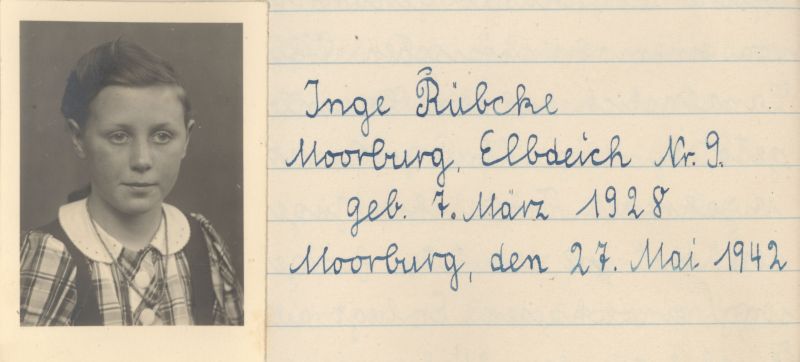 Inge Rübcke
Moorburg, Elbdeich Nr. 9.
geb. 7. März 1928
Moorburg, den 27. Mai 1942